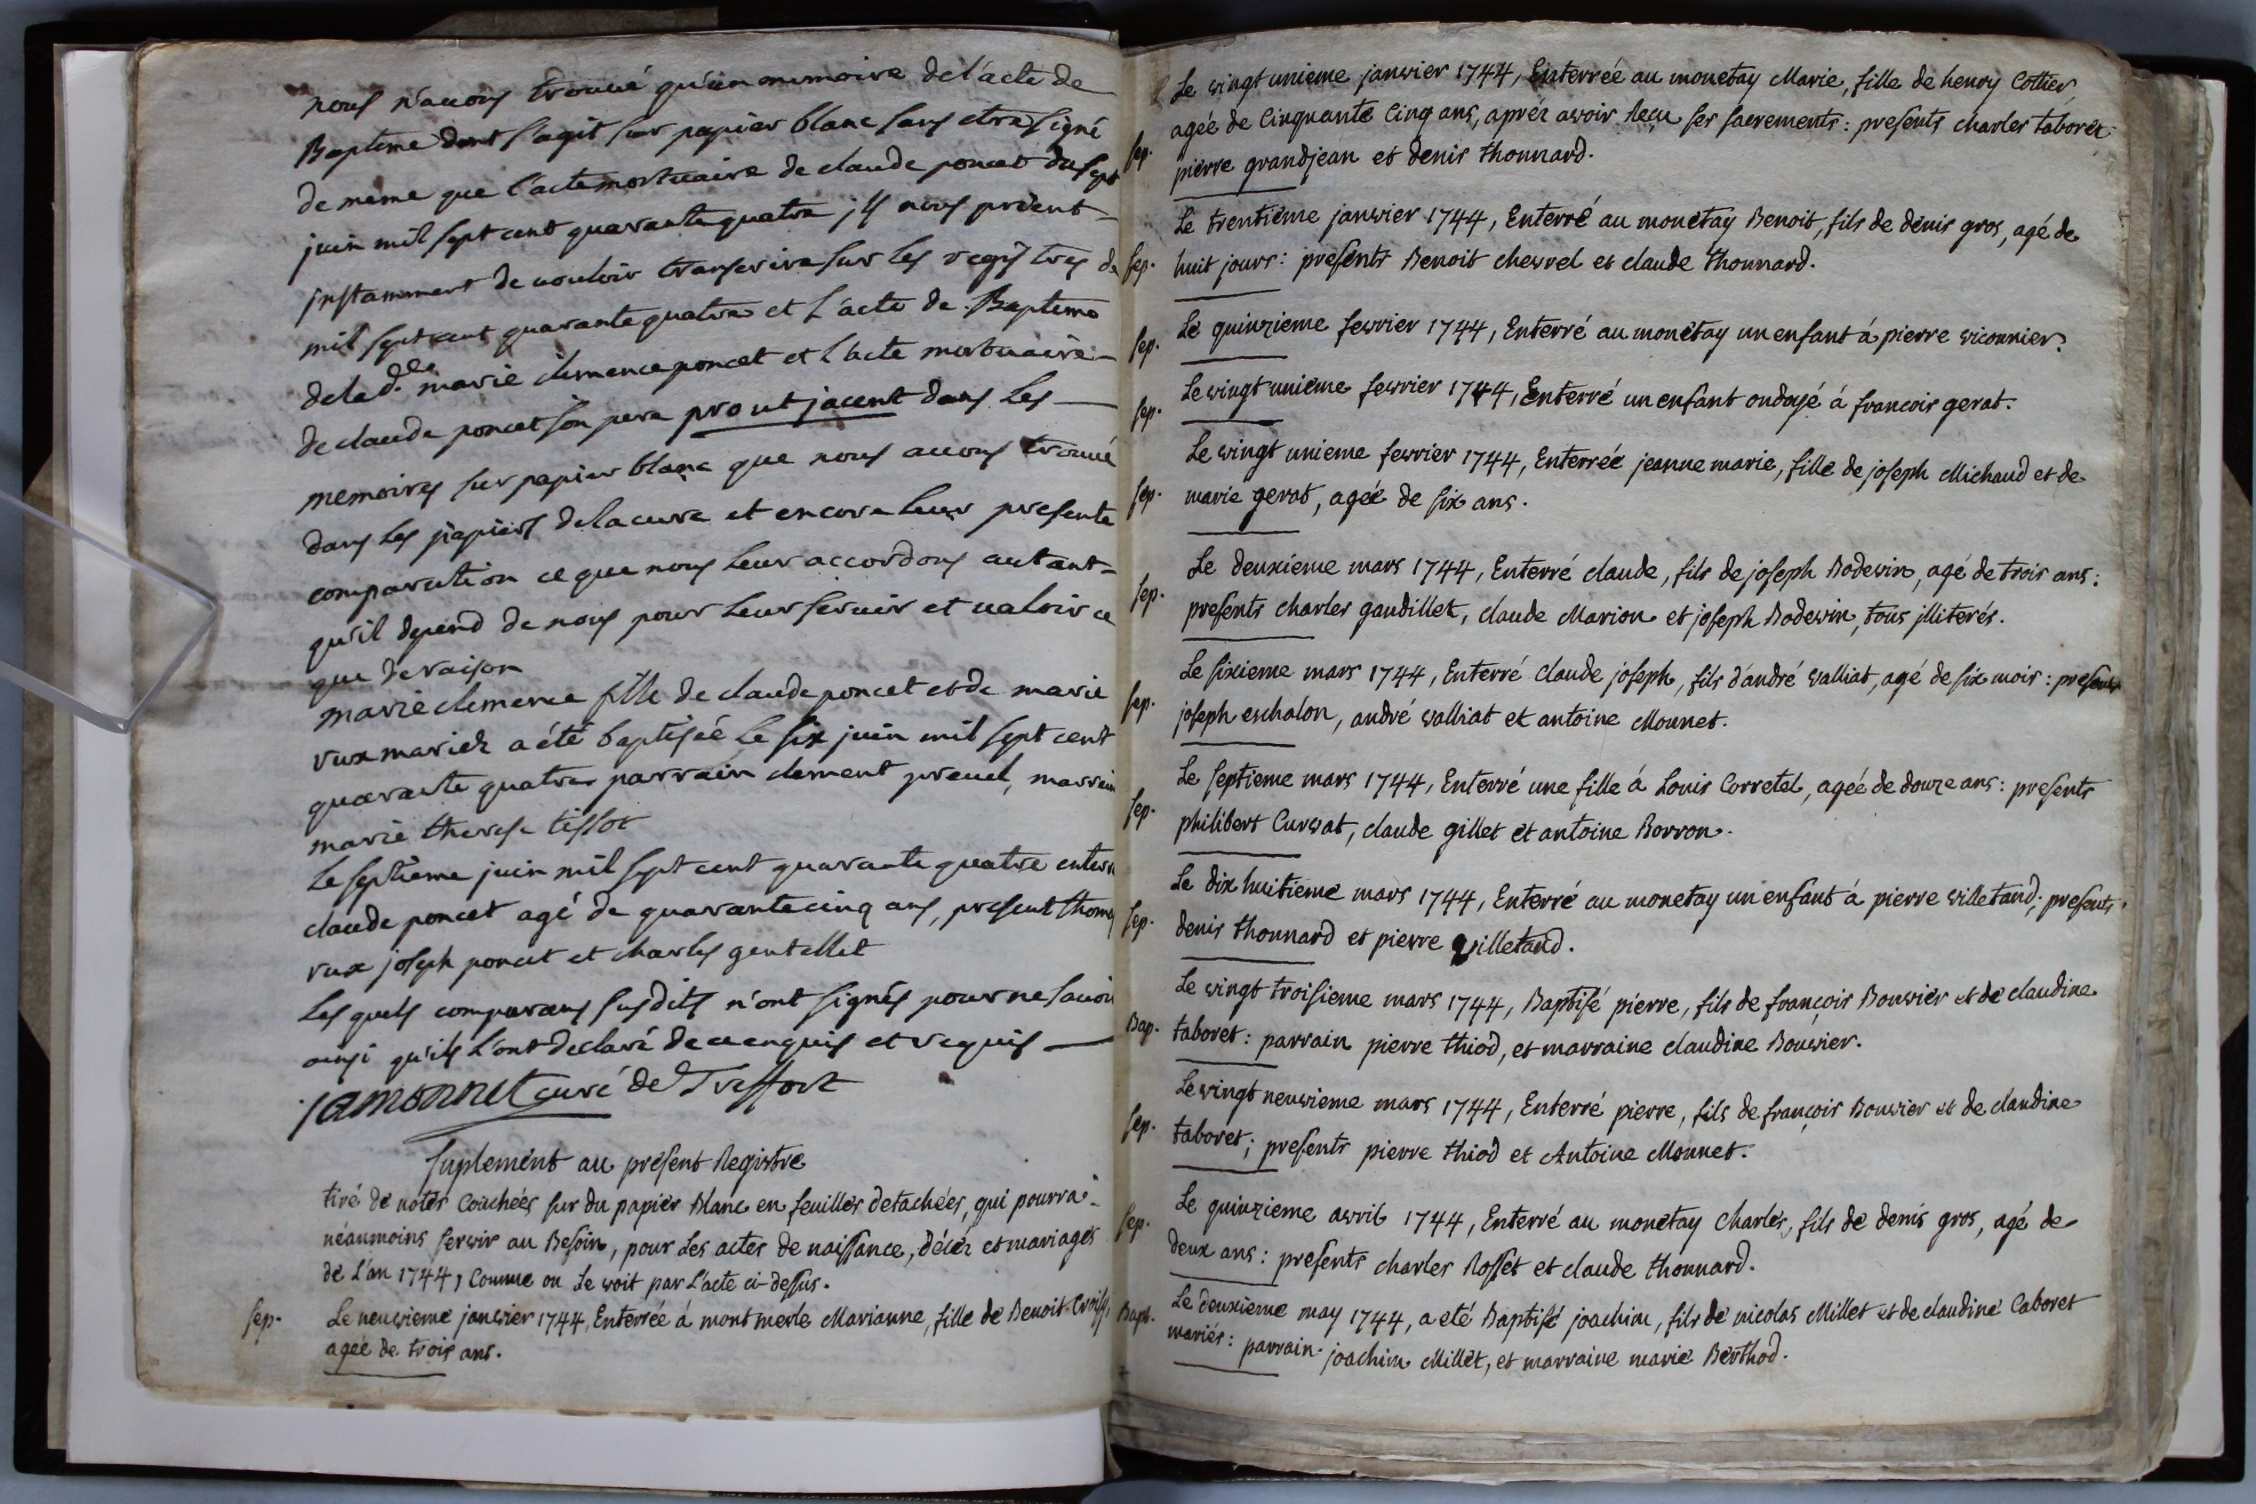 nous n'auons trouué qu'un memoire de l'acte de
Bapteme dont s'agit sur papier blanc sans etre signé
de meme que l'acte mortuaire de claude poncet du sept
juin mil sept cent quarante quatre ; ils nous prient
jnstamment de vouloir transcrire sur les registres de
mil sept cent quarante quatre et l'acte de Bapteme
de la d.lle marie clemence poncet et l'acte mortuaire
de claude poncet son pere prout jacent dans les
memoires sur papier blanc que nous auons trouué
dans les papiers de la cure et encore leur presente
comparution ce que nous leur accordons autant
qu'il depend de nous pour leur servir et valoir ce
que de raison
marie clemence fille de claude poncet et de marie
rux mariez a été baptisée le six juin mil sept cent
quarante quatre parrain clement preuel, marraine
marie therese tissot
le septieme juin mil sept cent quarante quatre enterré
claude poncet agé de quarante cinq ans, present thomas
rux joseph poncet et charles gentellet
les quels comparans susdits n'ont signés pour ne savoir
ainsi qu'ils l'ont declaré de ce enquis et requis
jamonnet curé de Treffort
suplement au présent Registre
tiré de notes Couchées sur du papier Blanc en feuilles detachées, qui pourra
néanmoins servir au Besoin, pour les actes de naissance, décéz et mariages
de L'an 1744, Comme on le voit par L'acte ci-dessus.
sep. Le neuvieme janvier 1744, Enterrée á mont merle Marianne, fille de Benoit
agée de trois ans.
Le vingt unieme janvier 1744, Enterrée au monetay Marie, fille de henry Cottier
sep. agée de Cinquante Cinq ans, aprèz avoir Reçu ses sacrements : presents charles taboret
pierre grandjean et denis thonnard.
Le trentieme janvier 1744, Enterré au monetay Benoit, fils de denis gros, agé de
sep. huit jours : presents Benoit chevrel et claude thonnard.
sep. Le quinzieme fevrier 1744, Enterré au monetay un enfant á pierre viconnier.
sep. Le vingt unieme fevrier 1744, Enterré un enfant ondoyé á francois gerat.
Le vingt unieme fevrier 1744, Enterrée jeanne marie, fille de joseph Michaud et de
sep. marie gerat, agée de six ans.
Le deuxieme mars 1744, Enterré claude, fils de joseph Bodevin, agé de trois ans :
sep. presents charles gaudillet, claude Marion et joseph Bodevin, tous jlliterés.
Le sixieme mars 1744, Enterré Claude joseph, fils d'andré Valliat, agé de six mois : presents
sep. joseph eschalon, andré valliat et antoine Monnet.
Le septieme mars 1744, Enterré une fille á Louis Corretel, agée de douze ans : presents
sep. philibert Curvat, claude gillet et antoine Borron.
Le dix huitieme mars 1744, Enterré au monetay un enfant á pierre villetand ; presents
sep. denis thonnard et pierre villetand.
Le vingt troisieme mars 1744, Baptisé pierre, fils de françois Bouvier et de claudine
Bap. taboret : parrain pierre thiod, et marraine claudine Bouvier.
Le vingt neuvieme mars 1744, Enterré pierre, fils de françois Bouvier et de claudine
sep. taboret ; presents pierre thiod et Antoine Monnet.
Le quinzieme avril 1744, Enterré au monetay Charles, fils de denis gros, agé de
sep. deux ans : presents charles Rosset et claude thonnard.
Bapt. Le deuxieme may 1744, a eté Baptisé joachim, fils de nicolas Millet et de claudine Caboret
mariés : parrain joachim Millet, et marraine marie Berthod.